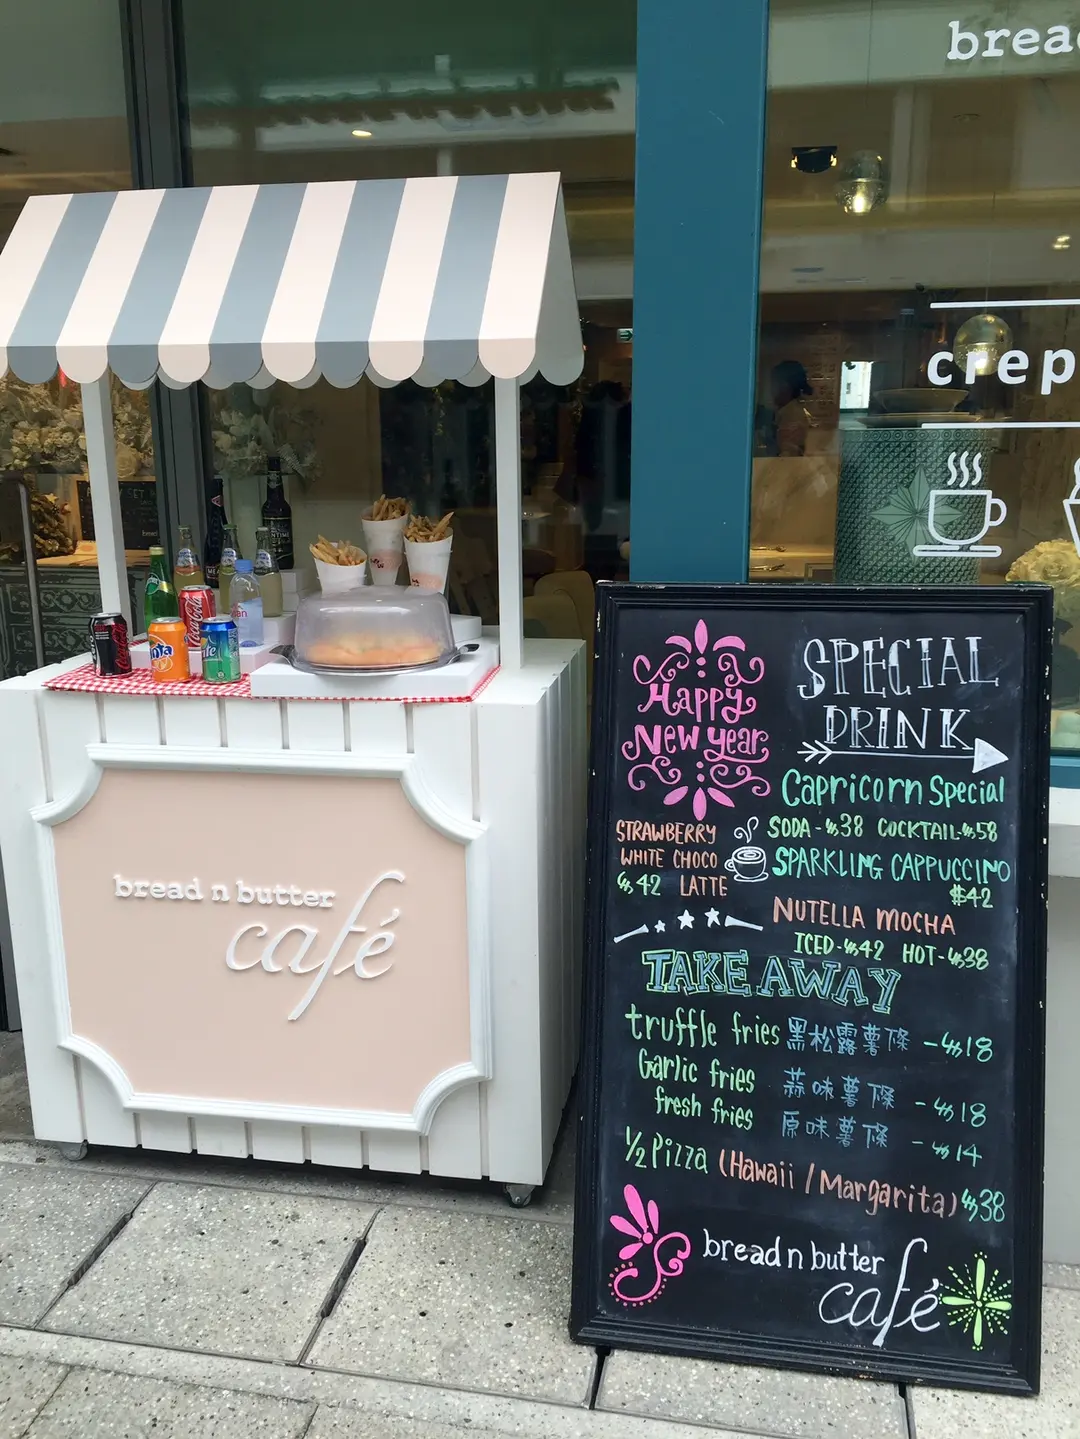 brea
crep
bread n butter
café
Coca-Cola
Happy
New year
SPECIAL
DRINK
Capricorn Special
SODA - $38 COCKTAIL - $58
STRAWBERRY
WHITE CHOCO
$42 LATTE
SPARKLING CAPPUCCINO
$42
NUTELLA MOCHA
ICED - $42 HOT - $38
TAKE AWAY
truffle fries 黑松露薯條 - $18
Garlic fries 蒜味薯條 - $18
fresh fries 原味薯條 - $14
1/2 Pizza (Hawaii / Margarita) $38
bread n butter
café